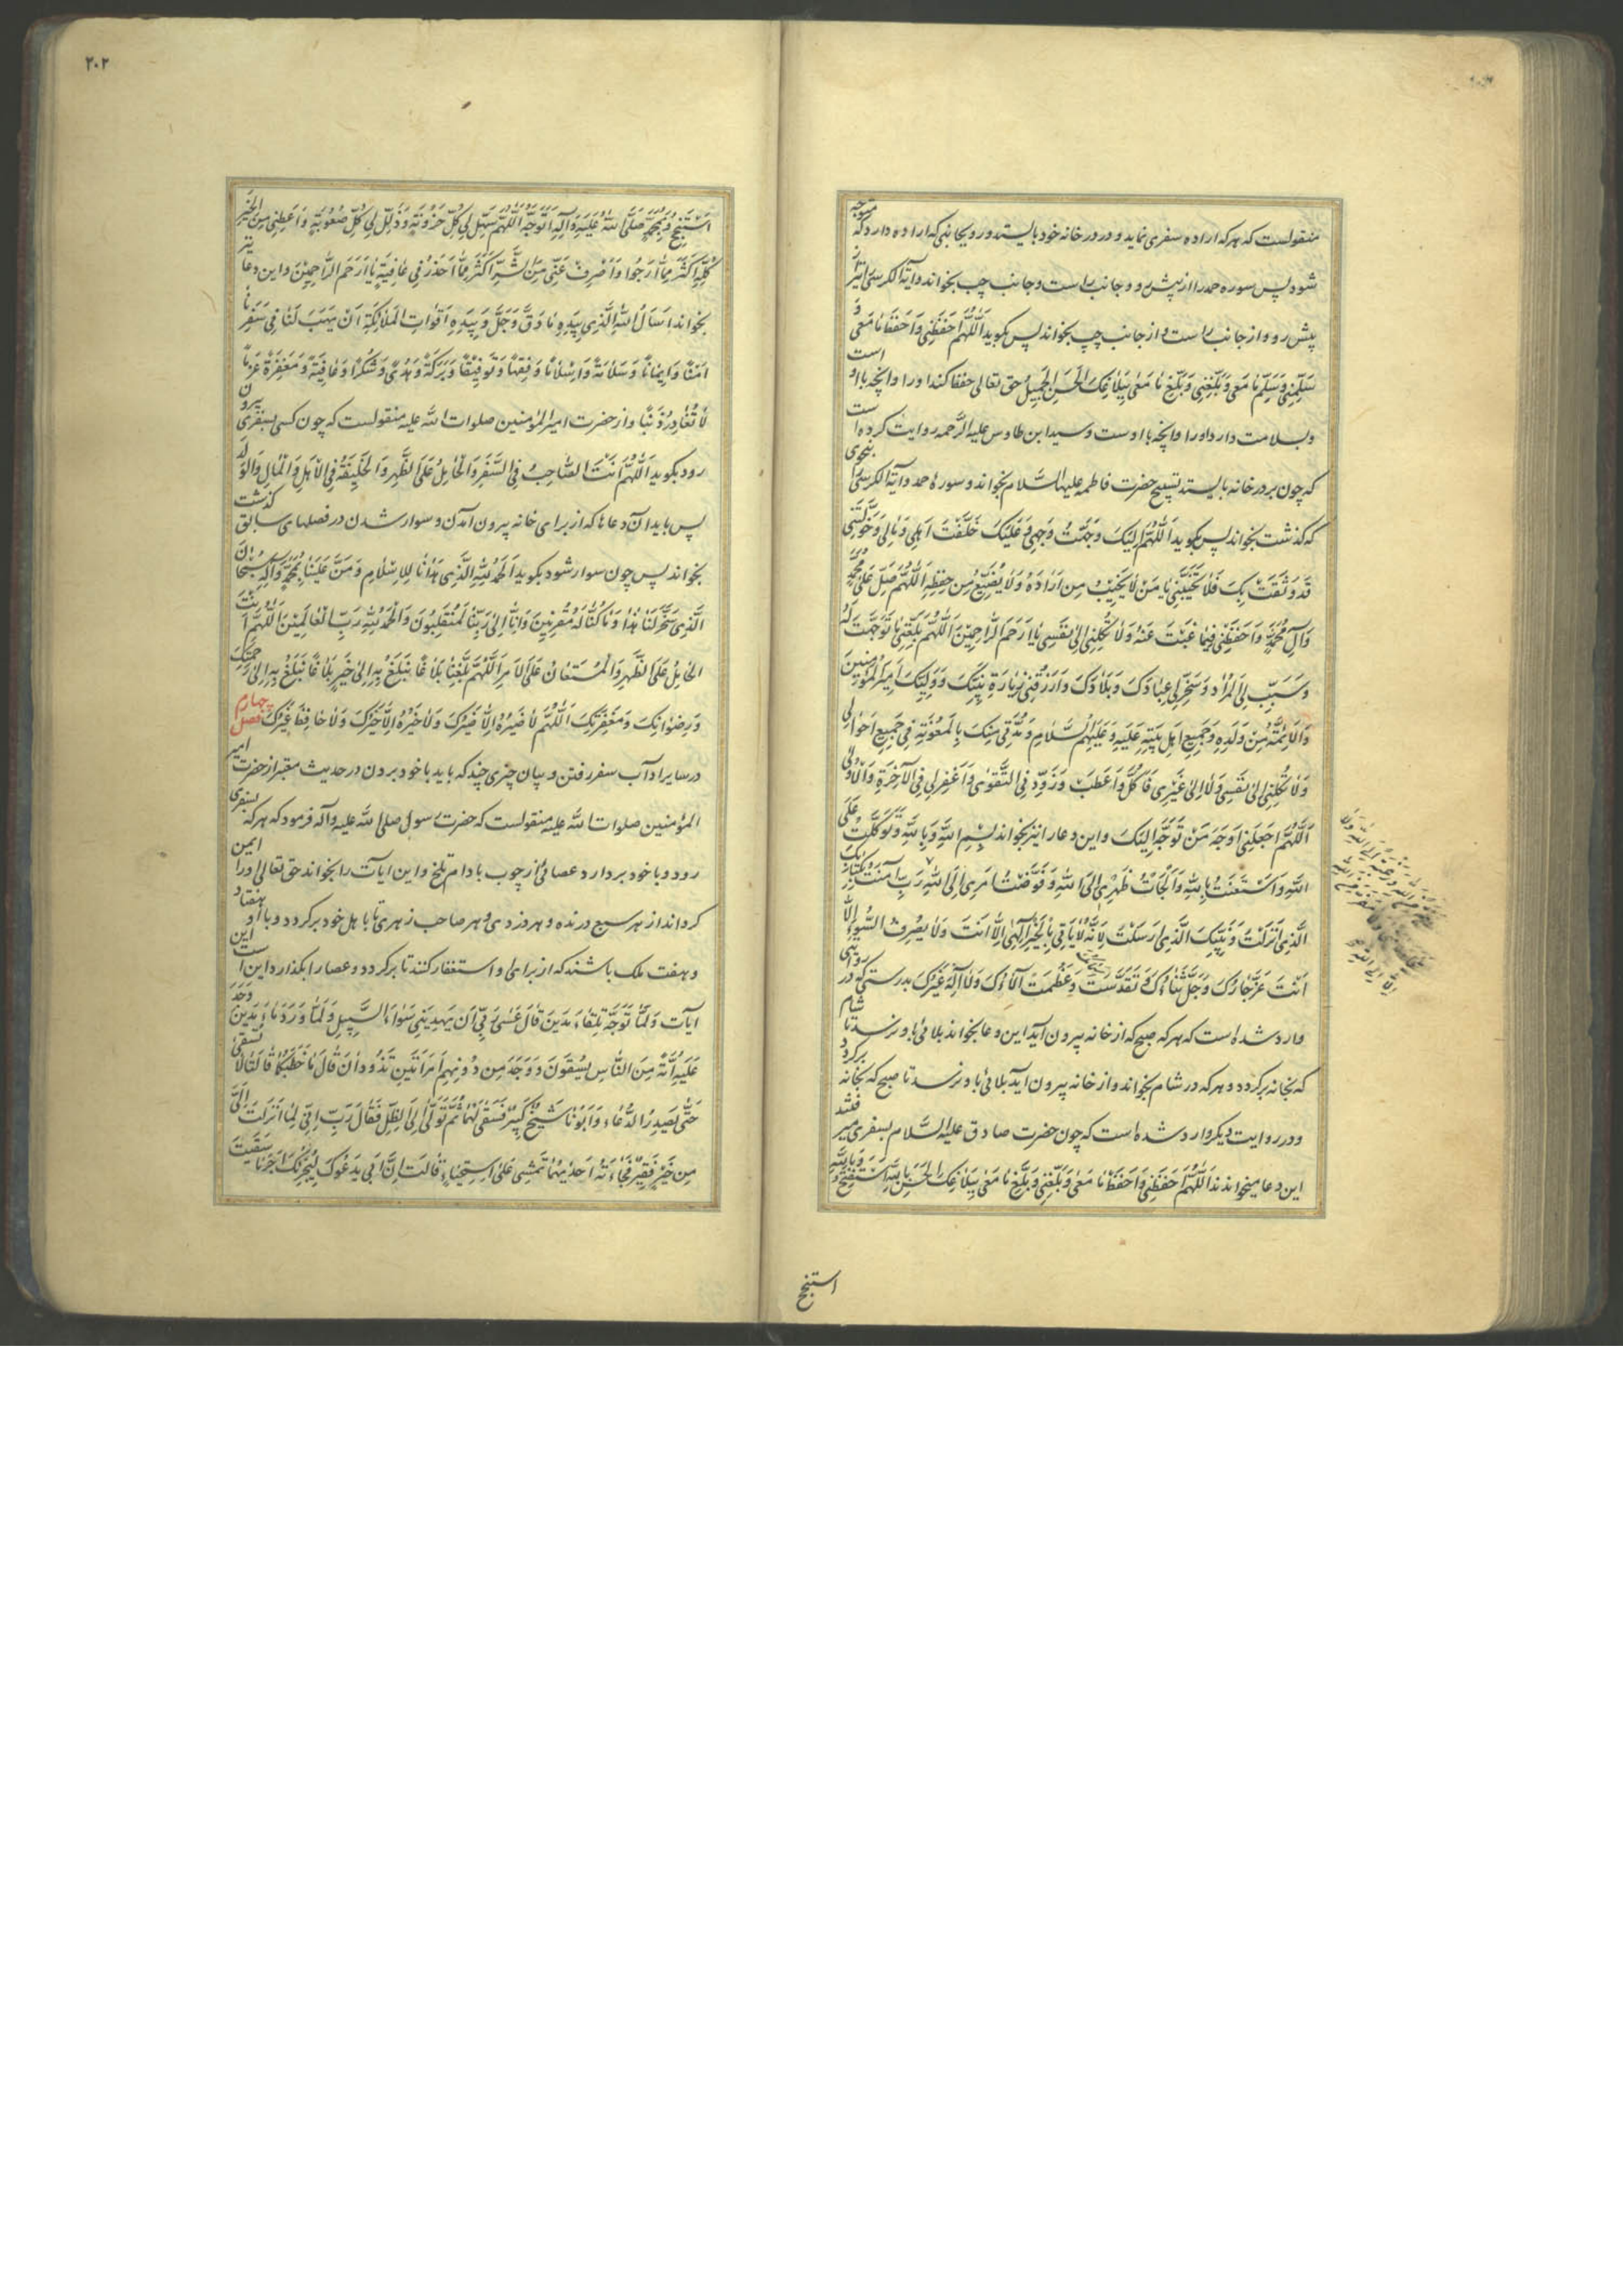 منقولست که هرکه اراده سفری نماید و در در خانه خود بایستد و رو بجانبی که اراده دارد که متوجه
شود پس سوره حمد را از پیش رو و جانب راست و جانب چپ بخواند و آیة الکرسی را نیز از
پیش رو و از جانب راست و از جانب چپ بخواند پس بکوید اَللّهُمَّ احْفَظْنی وَاحْفَظْ ما مَعی وَ
سَلِّمْنی وَسَلِّمْ ما مَعی وَبَلِّغْنی وَبَلِّغْ ما مَعی بِبَلاغِکَ الْحَسَنِ الْجَمیلِ حق تعالی حفظ کند او را و انچه با او است
و بسلامت دارد او را و انچه با اوست و سید ابن طاوس علیه الرحمه روایت کرده است
که چون بر در خانه بایستد تسبیح حضرت فاطمه علیها السلام بخواند و سوره حمد و آیة الکرسی را بنحوی
که کذشت بخواند پس بکوید اَللّهُمَّ اِلَیْکَ وَجَّهْتُ وَجْهی وَعَلَیْکَ خَلَّفْتُ اَهْلی وَمالی وَما خَوَّلْتَنی
قَدْ وَثِقْتُ بِکَ فَلا تُخَیِّبْنی یا مَنْ لا یُخَیِّبُ مَنْ اَرادَهُ وَلا یُضَیِّعُ مَنْ حَفِظَهُ اَللّهُمَّ صَلِّ عَلی مُحَمَّدٍ
وَآلِ مُحَمَّدٍ وَاحْفَظْنی فیما غِبْتُ عَنْهُ وَلا تَکِلْنی اِلی نَفْسی یا اَرْحَمَ الرّاحِمینَ اَللّهُمَّ بَلِّغْنی ما تَوَجَّهْتُ لَهُ
وَسَبِّبْ لِیَ الْمُرادَ وَسَخِّرْ لی عِبادَکَ وَبِلادَکَ وَارْزُقْنی زِیارَةَ نَبِیِّکَ وَوَلِیِّکَ اَمیرِ الْمُؤْمِنینَ
وَالْاَئِمَّةِ مِنْ وُلْدِهِ وَجَمیعِ اَهْلِ بَیْتِهِ عَلَیْهِ وَعَلَیْهِمُ السَّلامُ وَمُدَّنی مِنْکَ بِالْمَعُونَةِ فی جَمیعِ اَحْوالی
وَلا تَکِلْنی اِلی نَفْسی وَلا اِلی غَیْری فَاَکِلَّ وَاَعْطَبَ وَزَوِّدْنِی التَّقْوی وَاغْفِرْ لی فِی الْآخِرَةِ وَالْاُولی
اَللّهُمَّ اجْعَلْنی اَوْجَهَ مَنْ تَوَجَّهَ اِلَیْکَ و این دعا را نیز بخواند بِسْمِ اللّهِ وَبِاللّهِ وَتَوَکَّلْتُ عَلَی
اللّهِ وَاسْتَعَنْتُ بِاللّهِ وَاَلْجَأْتُ ظَهْری اِلَی اللّهِ وَفَوَّضْتُ اَمْری اِلَی اللّهِ رَبِّ آمَنْتُ بِکِتابِکَ
الَّذی اَنْزَلْتَ وَنَبِیِّکَ الَّذی اَرْسَلْتَ لِاَنَّهُ لا یَأْتی بِالْخَیْرِ اِلهی اِلّا اَنْتَ وَلا یَصْرِفُ السُّوءَ اِلّا
اَنْتَ عَزَّ جارُکَ وَجَلَّ ثَناؤُکَ وَتَقَدَّسَتْ وَعَظُمَتْ آلاؤُکَ وَلا اِلهَ غَیْرُکَ بدرستی که در روایتی
وارد شده است که هرکه صبح که از خانه بیرون آید این دعا بخواند بلائی باو نرسد تا شام
که بخانه برکردد و هرکه در شام بخواند و از خانه بیرون آید بلائی باو نرسد تا صبح که بخانه برکردد
و در روایت دیکر وارد شده است که چون حضرت صادق علیه السلام بسفری میرفتند
این دعا میخواندند اَللّهُمَّ احْفَظْنی وَاحْفَظْ ما مَعی وَبَلِّغْنی وَبَلِّغْ ما مَعی بِبَلاغِکَ الْحَسَنِ بِاللّهِ اَسْتَفْتِحُ وَبِاللّهِ
استنجح
٢٠٢
اَسْتَنْجِحُ وَبِمُحَمَّدٍ صَلَّی اللّهُ عَلَیْهِ وَآلِهِ اَتَوَجَّهُ اَللّهُمَّ سَهِّلْ لی کُلَّ حُزُونَةٍ وَذَلِّلْ لی کُلَّ صُعُوبَةٍ وَاَعْطِنی مِنَ الْخَیْرِ
کُلِّهِ اَکْثَرَ مِمّا اَرْجُوا وَاصْرِفْ عَنّی مِنَ الشَّرِّ اَکْثَرَ مِمّا اَحْذَرُ فی عافِیَةٍ یا اَرْحَمَ الرّاحِمینَ و این دعا نیز
بخواند اَسْأَلُ اللّهَ الَّذی بِیَدِهِ ما دَقَّ وَجَلَّ وَبِیَدِهِ اَقْواتُ الْمَلائِکَةِ اَنْ یَهَبَ لَنا فی سَفَرِنا
اَمْناً وَایماناً وَسَلامَةً وَاِسْلاماً وَفِقْهاً وَتَوْفیقاً وَبَرَکَةً وَهُدیً وَشُکْراً وَعافِیَةً وَمَغْفِرَةً عَزْماً
لا تُغادِرُ ذَنْباً و از حضرت امیر المؤمنین صلوات الله علیه منقولست که چون کسی بسفری بیرون
رود بکوید اَللّهُمَّ اَنْتَ الصّاحِبُ فِی السَّفَرِ وَالْحامِلُ عَلَی الظَّهْرِ وَالْخَلیفَةُ فِی الْاَهْلِ وَالْمالِ وَالْوَلَدِ
پس باید آن دعاها که از برای خانه بیرون آمدن و سوار شدن در فصلهای سابق کذشت
بخواند پس چون سوار شود بکوید اَلْحَمْدُ لِلّهِ الَّذی هَدانا لِلْاِسْلامِ وَمَنَّ عَلَیْنا بِمُحَمَّدٍ وَآلِهِ سُبْحانَ
الَّذی سَخَّرَ لَنا هذا وَما کُنّا لَهُ مُقْرِنینَ وَاِنّا اِلی رَبِّنا لَمُنْقَلِبُونَ وَالْحَمْدُ لِلّهِ رَبِّ الْعالَمینَ اَللّهُمَّ اَنْتَ
الْحامِلُ عَلَی الظَّهْرِ وَالْمُسْتَعانُ عَلَی الْاَمْرِ اَللّهُمَّ بَلِّغْنا بَلاغاً نَبْلُغُ بِهِ اِلی خَیْرٍ بَلاغاً نَبْلُغُ بِهِ اِلی رَحْمَتِکَ
وَرِضْوانِکَ وَمَغْفِرَتِکَ اَللّهُمَّ لا ضَیْرَ اِلّا ضَیْرُکَ وَلا خَیْرَ اِلّا خَیْرُکَ وَلا حافِظَ غَیْرُکَ فصل چهارم
در سایر آداب سفر رفتن و بیان چیزی چند که باید با خود بردن در حدیث معتبر از حضرت امیر
المؤمنین صلوات الله علیه منقولست که حضرت رسول صلی الله علیه وآله فرمود که هرکه بسفری
رود و با خود بردارد عصائی از چوب بادام تلخ و این آیات را بخواند حق تعالی او را ایمن
کرداند از هر سبع درنده و هر دزدی و هر صاحب زهری تا باهل خود برکردد و با او هفتاد
و هفت ملک باشند که از برای او استغفار کنند تا برکردد و عصا را بکذارد این است این
آیات وَلَمّا تَوَجَّهَ تِلْقاءَ مَدْیَنَ قالَ عَسی رَبّی اَنْ یَهْدِیَنی سَواءَ السَّبیلِ وَلَمّا وَرَدَ ماءَ مَدْیَنَ وَجَدَ
عَلَیْهِ اُمَّةً مِنَ النّاسِ یَسْقُونَ وَوَجَدَ مِنْ دُونِهِمُ امْرَأَتَیْنِ تَذُودانِ قالَ ما خَطْبُکُما قالَتا لا نَسْقی
حَتّی یُصْدِرَ الرِّعاءُ وَاَبُونا شَیْخٌ کَبیرٌ فَسَقی لَهُما ثُمَّ تَوَلّی اِلَی الظِّلِّ فَقالَ رَبِّ اِنّی لِما اَنْزَلْتَ اِلَیَّ
مِنْ خَیْرٍ فَقیرٌ فَجاءَتْهُ اِحْدیهُما تَمْشی عَلَی اسْتِحْیاءٍ قالَتْ اِنَّ اَبی یَدْعُوکَ لِیَجْزِیَکَ اَجْرَ ما سَقَیْتَ